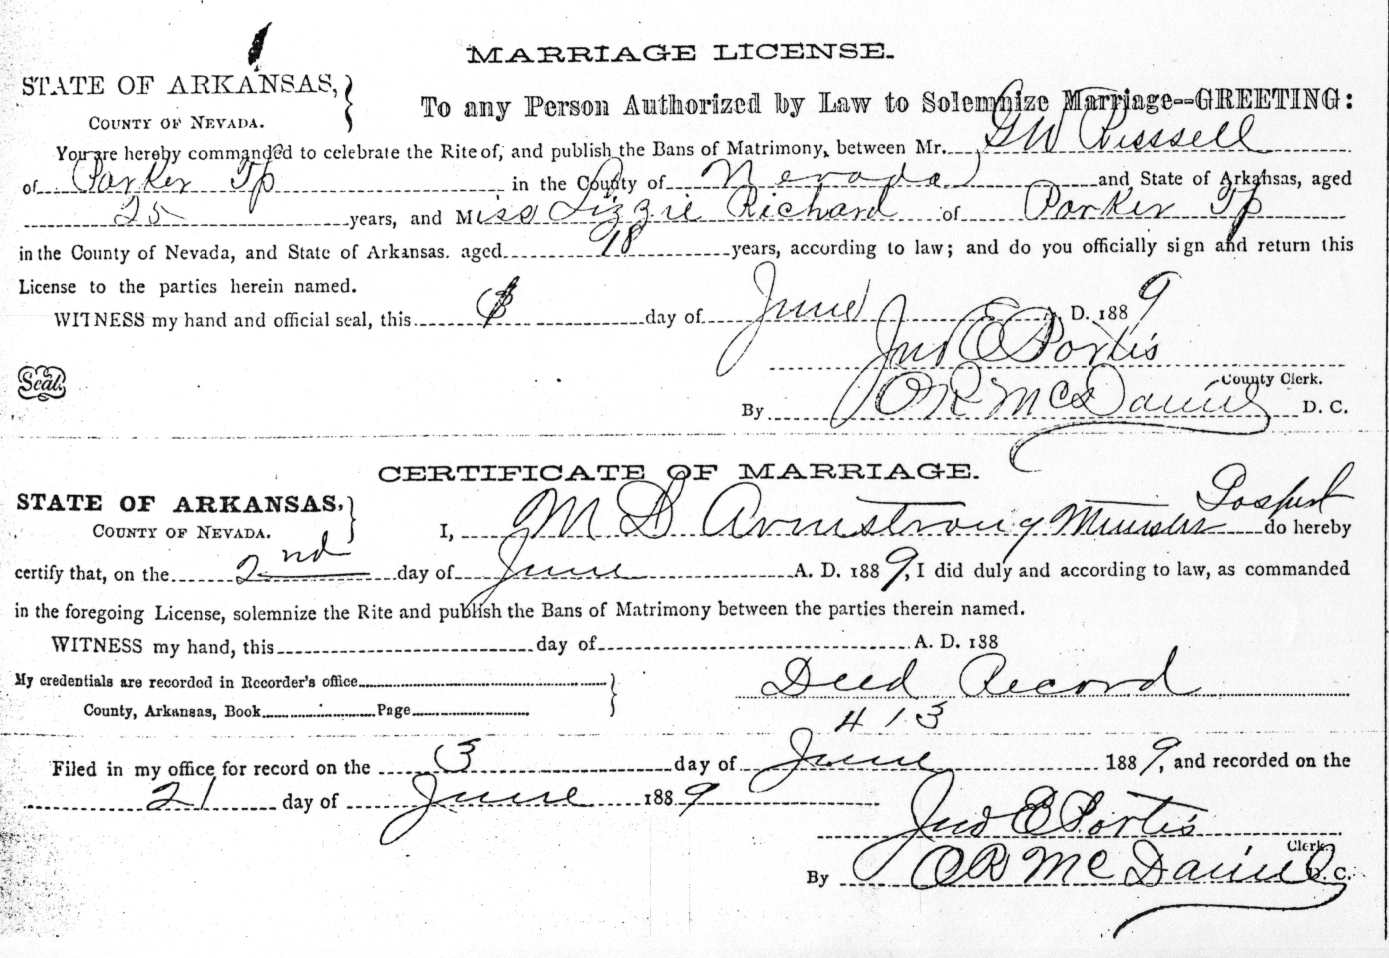 MARRIAGE LICENSE.
STATE OF ARKANSAS,
COUNTY OF NEVADA.
To any Person Authorized by Law to Solemnize Marriage--GREETING:
You are hereby commanded to celebrate the Rite of, and publish the Bans of Matrimony, between Mr. G W Russell
of Parker Tp in the County of Nevada and State of Arkansas, aged
25 years, and Miss Lizzie Richard of Parker Tp
in the County of Nevada, and State of Arkansas. aged 18 years, according to law; and do you officially sign and return this
License to the parties herein named.
WITNESS my hand and official seal, this day of June A. D. 1889
Jno E Portis
Seal.
County Clerk.
By O R McDaniel D. C.
CERTIFICATE OF MARRIAGE.
STATE OF ARKANSAS,
COUNTY OF NEVADA.
I, M D Armstrong Minister Gospel do hereby
certify that, on the 2nd day of June A. D. 1889, I did duly and according to law, as commanded
in the foregoing License, solemnize the Rite and publish the Bans of Matrimony between the parties therein named.
WITNESS my hand, this day of A. D. 188
My credentials are recorded in Recorder's office
Deed Record
County, Arkansas, Book Page
413
Filed in my office for record on the 3 day of June 1889, and recorded on the
21 day of June 1889
Jno E Portis
Clerk.
By O R McDaniel D. C.